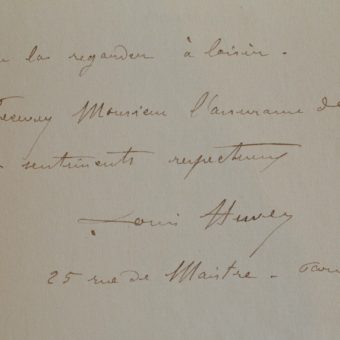 la regarder à loisir.
Recevez Monsieur l'assurance de
sentiments respectueux
Louis Huvey
25 rue de Maistre -